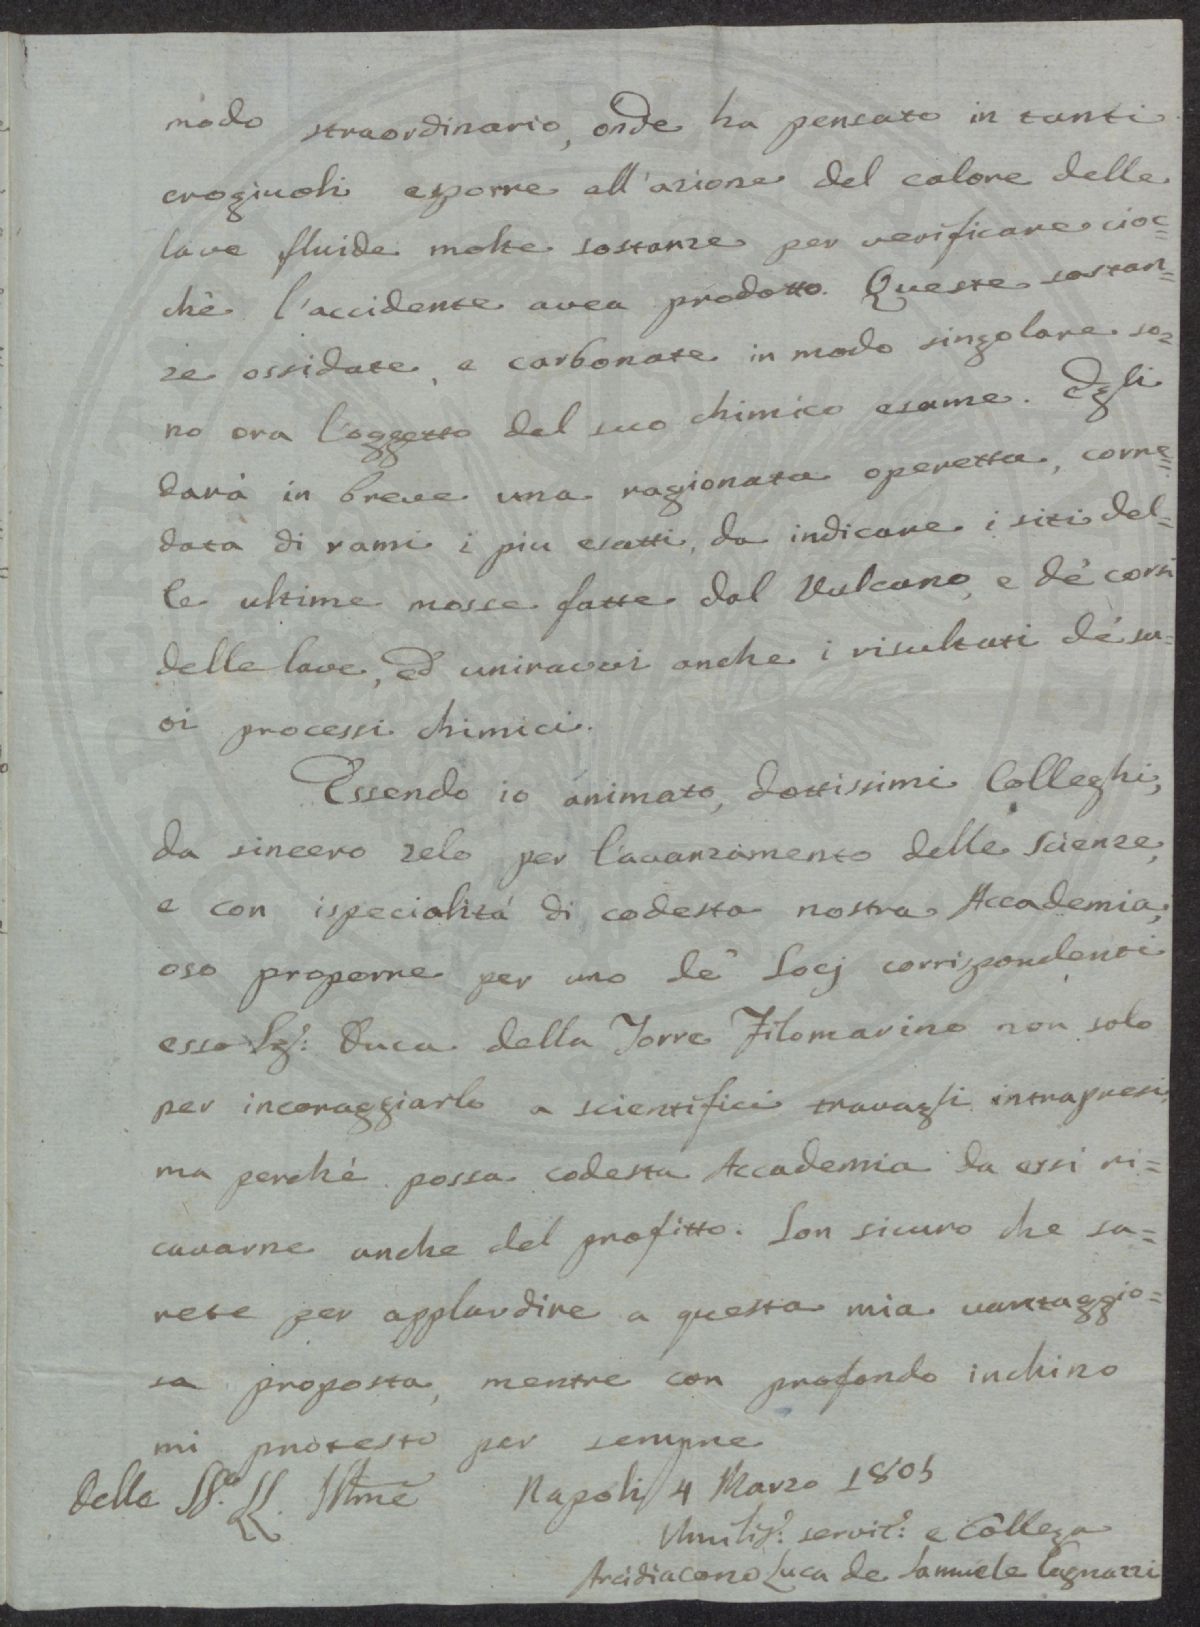 modo straordinario, onde ha pensato in tanti
crogiuoli esporre all'azione del calore delle
lave fluide molte sostanze per verificare cioc=
chè l'accidente avea prodotto. Queste sostan=
ze ossidate, e carbonate in modo singolare so=
no ora l'oggetto del suo chimico esame. Egli
darà in breve una ragionata operetta, corre=
data di rami i piu esatti, da indicare i siti del=
le ultime mosse fatte dal Vulcano, e de' corsi
delle lave, ed uniravvi anche i risultati de' su=
oi processi chimici.
Essendo io animato, dottissimi Colleghi,
da sincero zelo per l'avanzamento delle scienze,
e con ispecialitá di codesta nostra Accademia,
oso proporre per uno de' Socj corrispondenti
esso Sg.: Duca della Torre Filomarino non solo
per incoraggiarlo a scientifici travagli intrapresi,
ma perchè possa codesta Accademia da essi ri=
cavarne anche del profitto. Son sicuro che sa=
rete per applaudire a questa mia vantaggio=
sa proposta, mentre con profondo inchino
mi protesto per sempre
delle SS.e LL. Illme Napoli 4 Marzo 1805
Umilis.: servit.: e Collega
Arcidiacono Luca de Samuele Cagnazzi